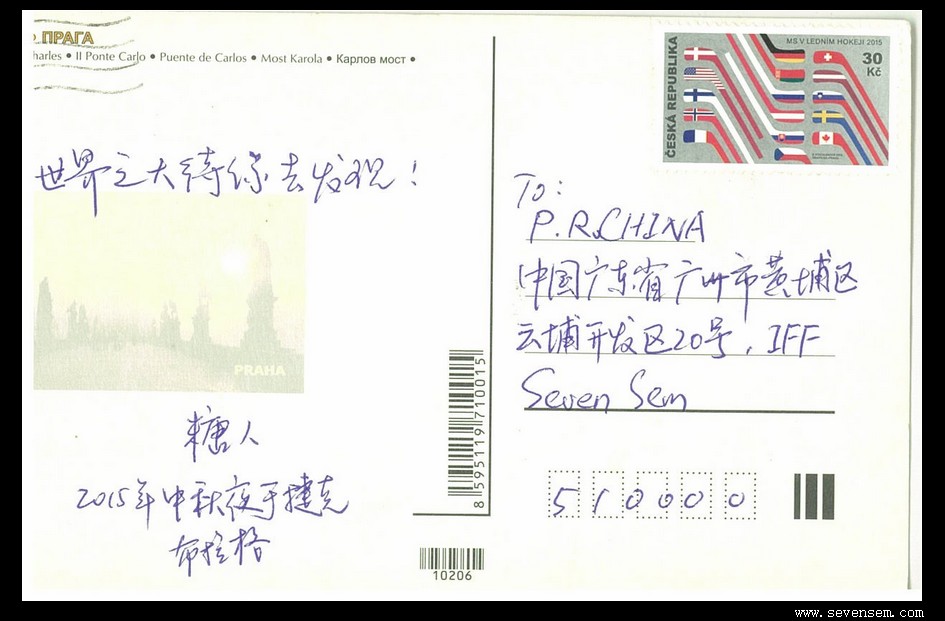 ПРАГА
harles • Il Ponte Carlo • Puente de Carlos • Most Karola • Карлов мост •
世界之大待你去发现！
PRAHA
糖人
2015年中秋夜于捷克
布拉格
8595119710015
10206
ČESKÁ REPUBLIKA
MS V LEDNÍM HOKEJI 2015
30
Kč
To:
P.R.CHINA
中国广东省广州市黄埔区
云埔开发区20号，IFF
Seven Sem
510000
www.sevensem.com